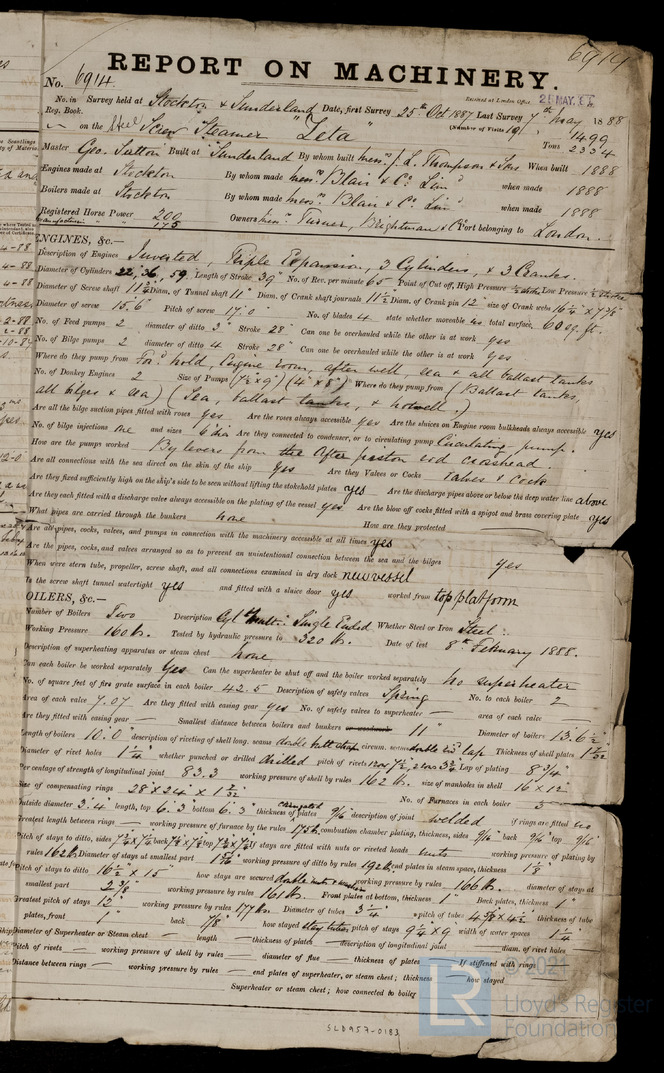 6914
REPORT ON MACHINERY.
No. 6914.
Received at London Office, 25 MAY. 88
No. in Survey held at Stockton & Sunderland Date, first Survey 25th Oct 1887 Last Survey 7th May 1888
Reg. Book. (Number of Visits
on the Steel Screw Steamer "Zeta" Tons 1499
2334
Master Geo. Sutton Built at Sunderland By whom built Messrs J. L. Thompson & Sons When built 1888
Engines made at Stockton By whom made Messrs Blair & Co. Limd when made 1888
Boilers made at Stockton By whom made Messrs Blair & Co. Limd when made 1888
Registered Horse Power 200 Owners Messrs Turner, Brightman & Co Port belonging to London.
175
ENGINES, &c.—
Description of Engines Inverted, Triple Expansion, 3 Cylinders, & 3 Cranks.
Diameter of Cylinders 22, 36, 59, Length of Stroke 39" No. of Rev. per minute 65 Point of Cut off, High Pressure Low Pressure
Diameter of Screw shaft 11 3/4 Diam. of Tunnel shaft 11" Diam. of Crank shaft journals 11 1/2 Diam. of Crank pin 12" size of Crank webs 16 1/4 x 7 3/4
Diameter of screw 15.6 Pitch of screw 17.0 No. of blades 4 state whether moveable no total surface, 60 sq. ft.
No. of Feed pumps 2 diameter of ditto 3" Stroke 28" Can one be overhauled while the other is at work yes
No. of Bilge pumps 2 diameter of ditto 4 Stroke 28" Can one be overhauled while the other is at work yes
Where do they pump from Ford hold, Engine room, after well, sea & all ballast tanks
No. of Donkey Engines 2 Size of Pumps (7 1/2 x 9") (4" x 8") Where do they pump from (Ballast tanks,
all bilges & sea) (Sea, ballast tanks, & hotwell.)
Are all the bilge suction pipes fitted with roses yes Are the roses always accessible yes Are the sluices on Engine room bulkheads always accessible yes
No. of bilge injections one and sizes 6" dia Are they connected to condenser, or to circulating pump Circulating pump.
How are the pumps worked By levers from the after piston rod crosshead.
Are all connections with the sea direct on the skin of the ship yes Are they Valves or Cocks Valves & Cocks
Are they fixed sufficiently high on the ship's side to be seen without lifting the stokehold plates yes Are the discharge pipes above or below the deep water line above
Are they each fitted with a discharge valve always accessible on the plating of the vessel yes Are the blow off cocks fitted with a spigot and brass covering plate yes
What pipes are carried through the bunkers none How are they protected
Are all pipes, cocks, valves, and pumps in connection with the machinery accessible at all times yes
Are the pipes, cocks, and valves arranged so as to prevent an unintentional connection between the sea and the bilges yes
When were stern tube, propeller, screw shaft, and all connections examined in dry dock new vessel
Is the screw shaft tunnel watertight yes and fitted with a sluice door yes worked from top platform
OILERS, &c.—
Number of Boilers Two Description Cyl Multi. Single Ended Whether Steel or Iron Steel.
Working Pressure 160 lbs. Tested by hydraulic pressure to 320 lbs. Date of test 8th February 1888.
Description of superheating apparatus or steam chest none
Can each boiler be worked separately Yes Can the superheater be shut off and the boiler worked separately no superheater
No. of square feet of fire grate surface in each boiler 42.5 Description of safety valves Spring No. to each boiler 2
Area of each valve 7.07 Are they fitted with easing gear yes No. of safety valves to superheater — area of each valve
Are they fitted with easing gear — Smallest distance between boilers and bunkers 11" Diameter of boilers 13.6 1/2
Length of boilers 10.0" description of riveting of shell long. seams double butt strap circum. seams double rivd lap Thickness of shell plates 1 1/32
Diameter of rivet holes 1 1/4 whether punched or drilled drilled pitch of rivets Lap of plating 8 3/4
Per centage of strength of longitudinal joint 83.3 working pressure of shell by rules 162 lbs. size of manholes in shell 16 x 12
Size of compensating rings 28 x 24 x 1 1/32 No. of Furnaces in each boiler 3
Outside diameter 3.4 length, top 6.3 bottom 6.3 thickness of plates corrugated 9/16 description of joint welded if rings are fitted no
Greatest length between rings — working pressure of furnace by the rules 175 lbs. combustion chamber plating, thickness, sides 9/16 back 9/16 top 9/16
Pitch of stays to ditto, sides 7 1/2 x 7 1/2 back 7 1/2 x 7 1/2 top 7 1/2 x 7 1/2 If stays are fitted with nuts or riveted heads nuts working pressure of plating by
rules 162 lbs Diameter of stays at smallest part working pressure of ditto by rules 192 lbs. end plates in steam space, thickness 1 1/8
Pitch of stays to ditto 16 1/2 x 15" how stays are secured double nuts & washers working pressure by rules 166 lbs. diameter of stays at
smallest part 2 3/8 working pressure by rules 161 lbs. Front plates at bottom, thickness 1" Back plates, thickness 1"
Greatest pitch of stays 12" working pressure by rules 177 lbs. Diameter of tubes 3 1/4 pitch of tubes 4 5/8 x 4 1/2 thickness of tube
plates, front 1" back 7/8 how stayed stay tubes pitch of stays 9 1/4 x 9 width of water spaces 1 1/4
Diameter of Superheater or Steam chest length thickness of plates description of longitudinal joint diam. of rivet holes
Pitch of rivets — working pressure of shell by rules — diameter of flue — thickness of plates If stiffened with rings
Distance between rings — working pressure by rules — end plates of superheater, or steam chest; thickness — how stayed
Superheater or steam chest; how connected to boiler
SLD957-0183
© 2021
LR
Lloyd's Register
Foundation